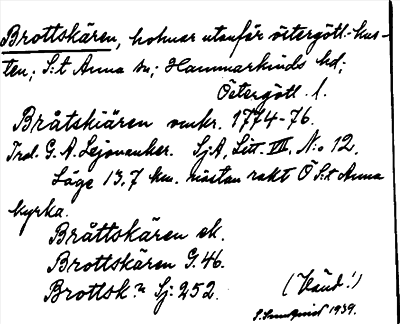 Brottskären, holmar utanför östergötl. kus-
ten; S:t Anna sn; Hammarkinds hd;
Östergötl. l.
Bråtskiären omkr. 1774-76.
G. A. SjA, Litt. VIII, N:o 12.
Läge 13,7 km. nästan rakt Ö S:t Anna
kyrka.
Bråttskären ek.
Brottskären G. 46.
Brottsk:n Sj: 252. (Vänd!)
1939.